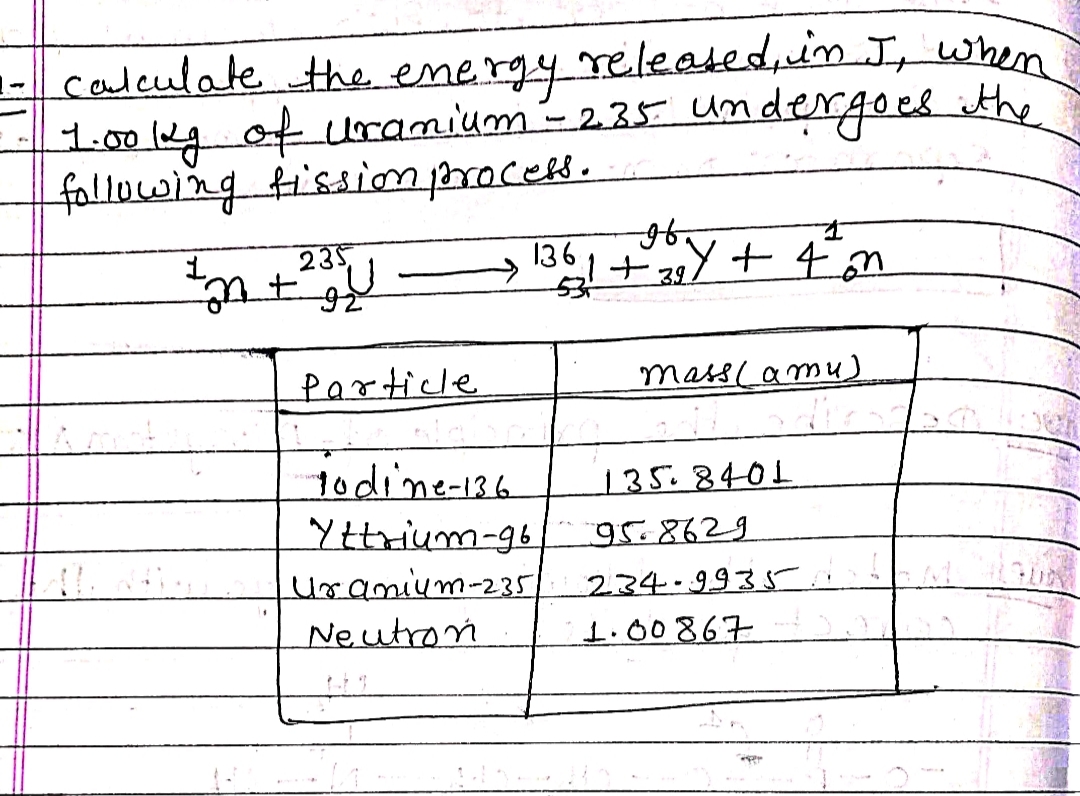 1- calculate the energy released, in J, when
1.00 kg of Uranium - 235 undergoes the
following fission process.
¹₀n + ²³⁵₉₂U ⟶ ¹³⁶₅₃I + ⁹⁶₃₉Y + 4 ¹₀n
Particle mass(amu)
iodine-136 135.8401
Yttrium-96 95.8629
Uranium-235 234.9935
Neutron 1.00867